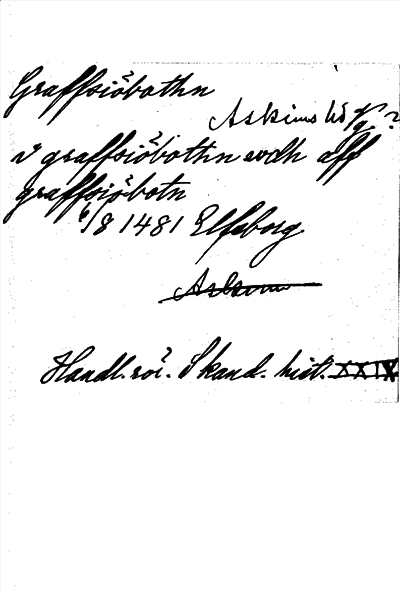 Graffsiöbothn
Askims hd
v graffsiöbothn och aff
graffsiöbotn
6/8 1481 Elfsborg
Askims
Handl. rör. Skand. hist. XXIX